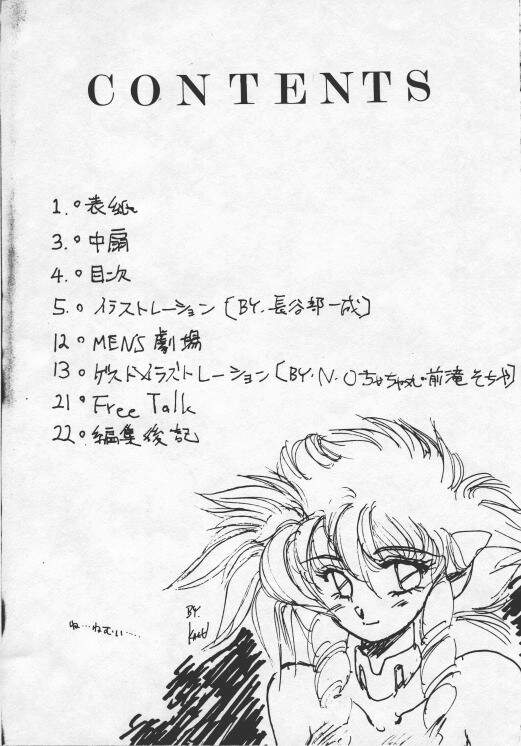 CONTENTS
1.°表紙
3.°中扇
4.°目次
5.°イラストレーション〔BY.長谷部一成〕
12°MENS劇場
13°ゲストイラストレーション〔BY.N.O
21°Free Talk
22°編集後記
BY
ね…ねむい……